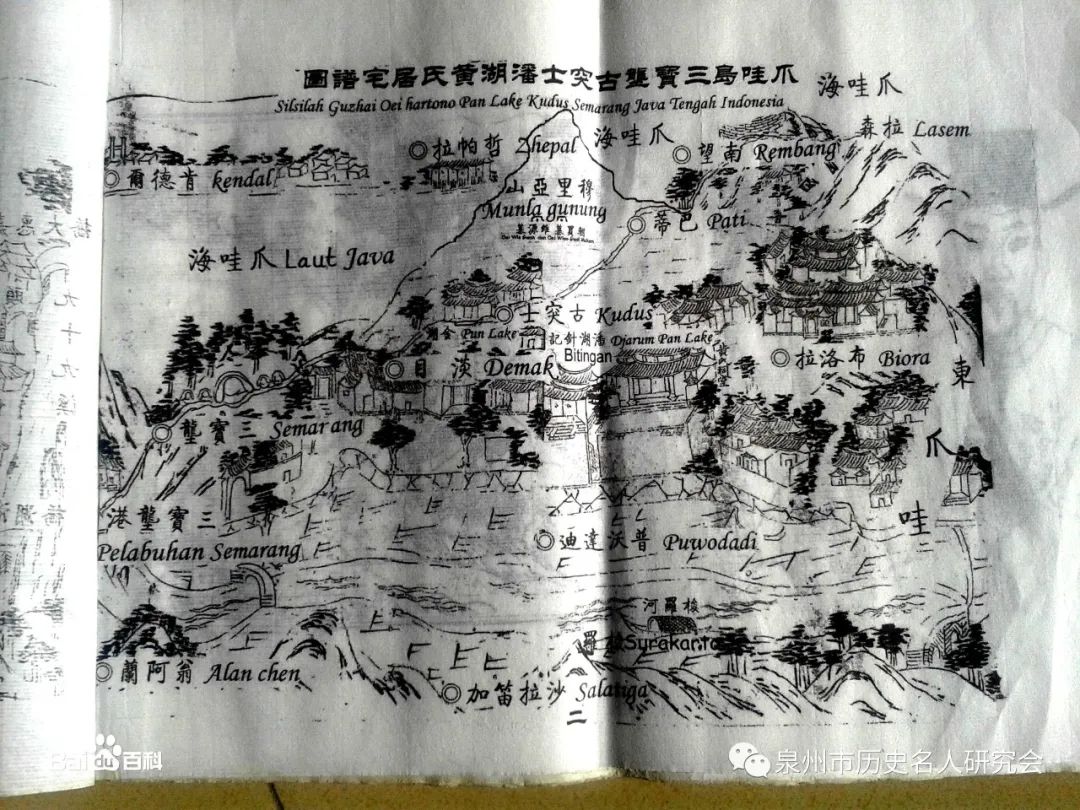 爪哇島三寶壟古突士潘湖黃氏居宅譜圖
Silsilah Guzhai Oei hartono Pan Lake Kudus Semarang Java Tengah Indonesia
爪哇海
爪哇海
拉森 Lasem
哲帕拉 Zhepal
南望 Rembang
肯德爾 kendal
穆里亞山
Munla gunung
巴蒂 Pati
爪哇海 Laut Java
古突士 Kudus
Pun Lake
潘湖針記 Djarum Pan Lake
Bitingan
淡目 Demak
布洛拉 Biora
東爪哇
三寶壟 Semarang
三寶壟港
Pelabuhan Semarang
普沃達迪 Puwodadi
梭羅河
羅 Surakarta
翁阿蘭 Alan chen
沙拉笛加 Salatiga
二
九十九溪
Baidu百科
泉州市历史名人研究会